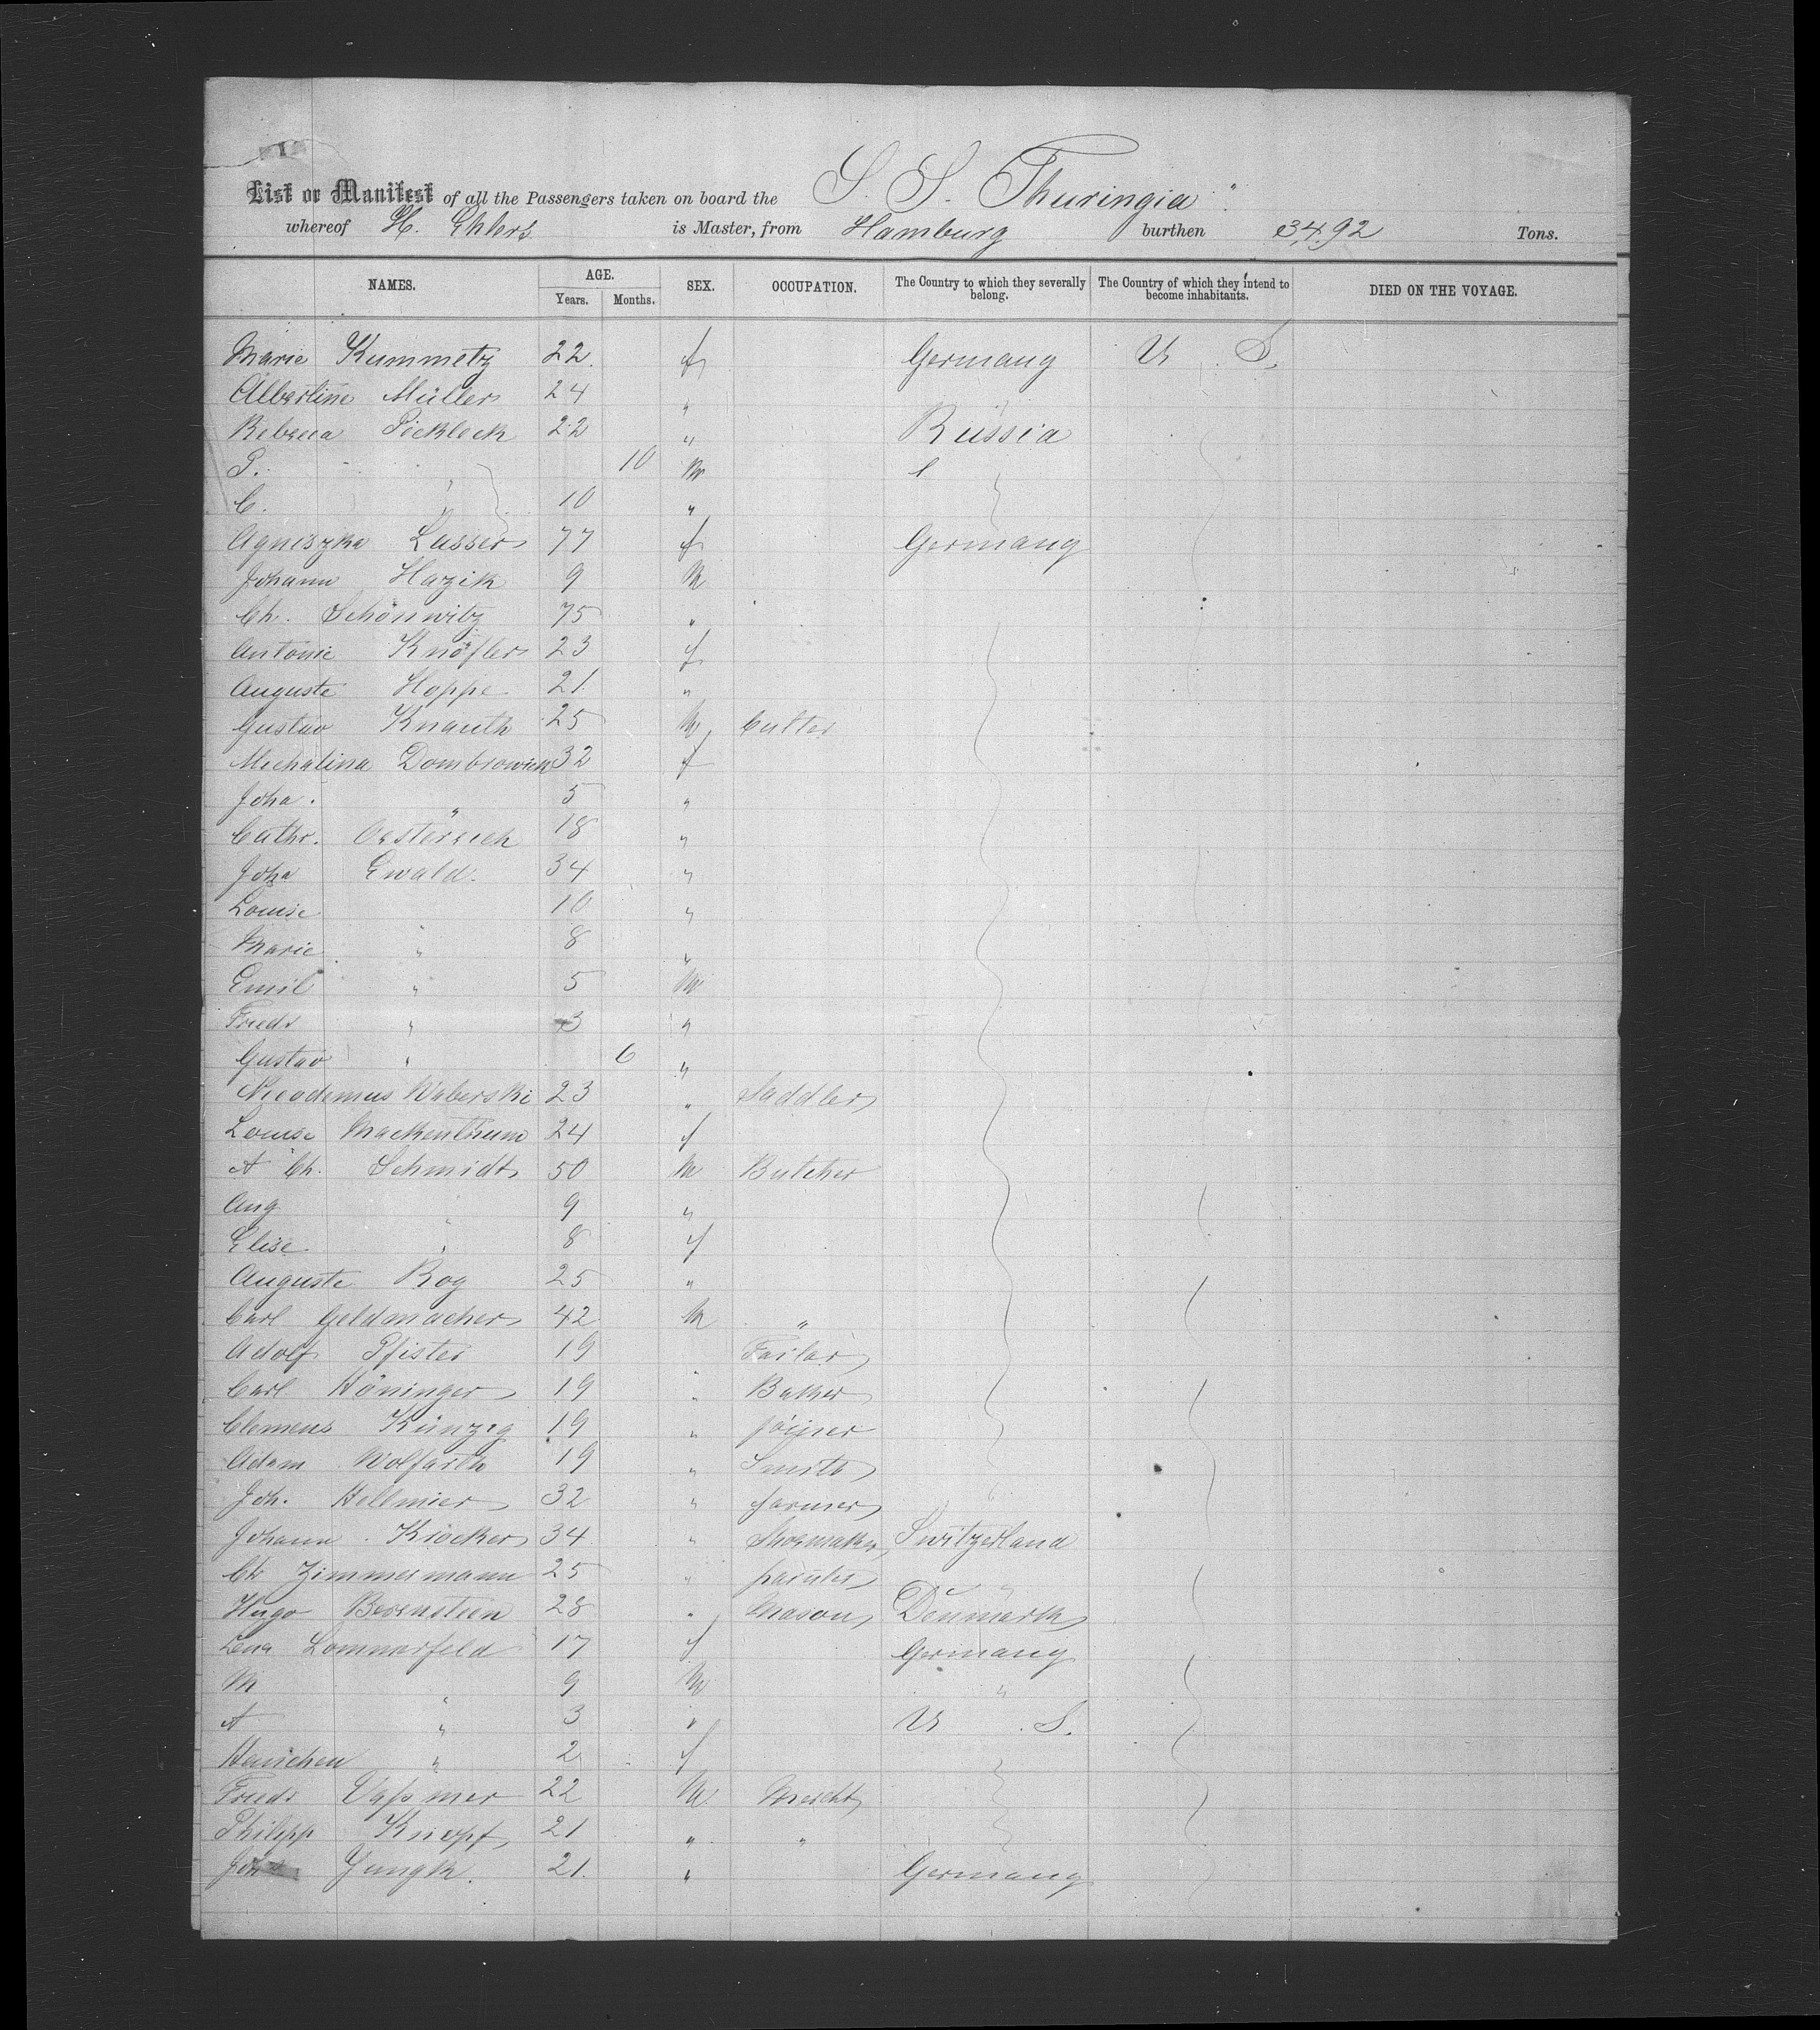 List or Manifest of all the Passengers taken on board the S. S. Thuringia"
whereof H. Ehlers is Master, from Hamburg burthen 3492 Tons.
NAMES. AGE. Years. Months. SEX. OCCUPATION. The Country to which they severally belong. The Country of which they intend to become inhabitants. DIED ON THE VOYAGE.
Marie Kummetz 22. f Germany U. S.
Albertine Müller 24 "
Rebecca 22 " Russia
S. 10 m
C. " 10 "
Agniszka Lasser 77 f Germany
Johann Hazik 9 m
Ch. Schönwitz 75 "
Antonie Knöfler 23 f
Auguste Hoppe 21 "
Gustav Knauth 25 m Cutter
Michalina 32 f
Joha. " 5 "
Cathr. Oesterreich 18 "
Joha Ewald. 34 "
Louise 10 "
Marie " 8 "
Emil " 5 m
Friedr " 3 "
Gustav " 6 "
Nicodemus Waberski 23 " Saddler
Louise Mackenthum 24 f
A Ch. Schmidt 50 m Butcher
Aug " 9 "
Elise " 8 f
Auguste Rog 25 "
Carl Geldmacher 42 m "
Adolf Pfister 19 Tailor
Carl Höninger 19 " Baker
Clemens Künzig 19 " joiner
Adam Wolfarth 19 " Smith
Joh. Hellmier 32 " farmer
Johann Kröcker 34 " Shoemaker Switzerland
Ch Zimmermann 25 " painter "
Hugo Berenstein 28 " Mason Denmark
Lena Lommerfeld 17 f Germany
M " 9 m "
A " 3 " U. S.
Hanchen " 2 f
Friedr 22 m Mercht
Philipp Knopf 21 " "
Joh Jungk. 21. " Germany